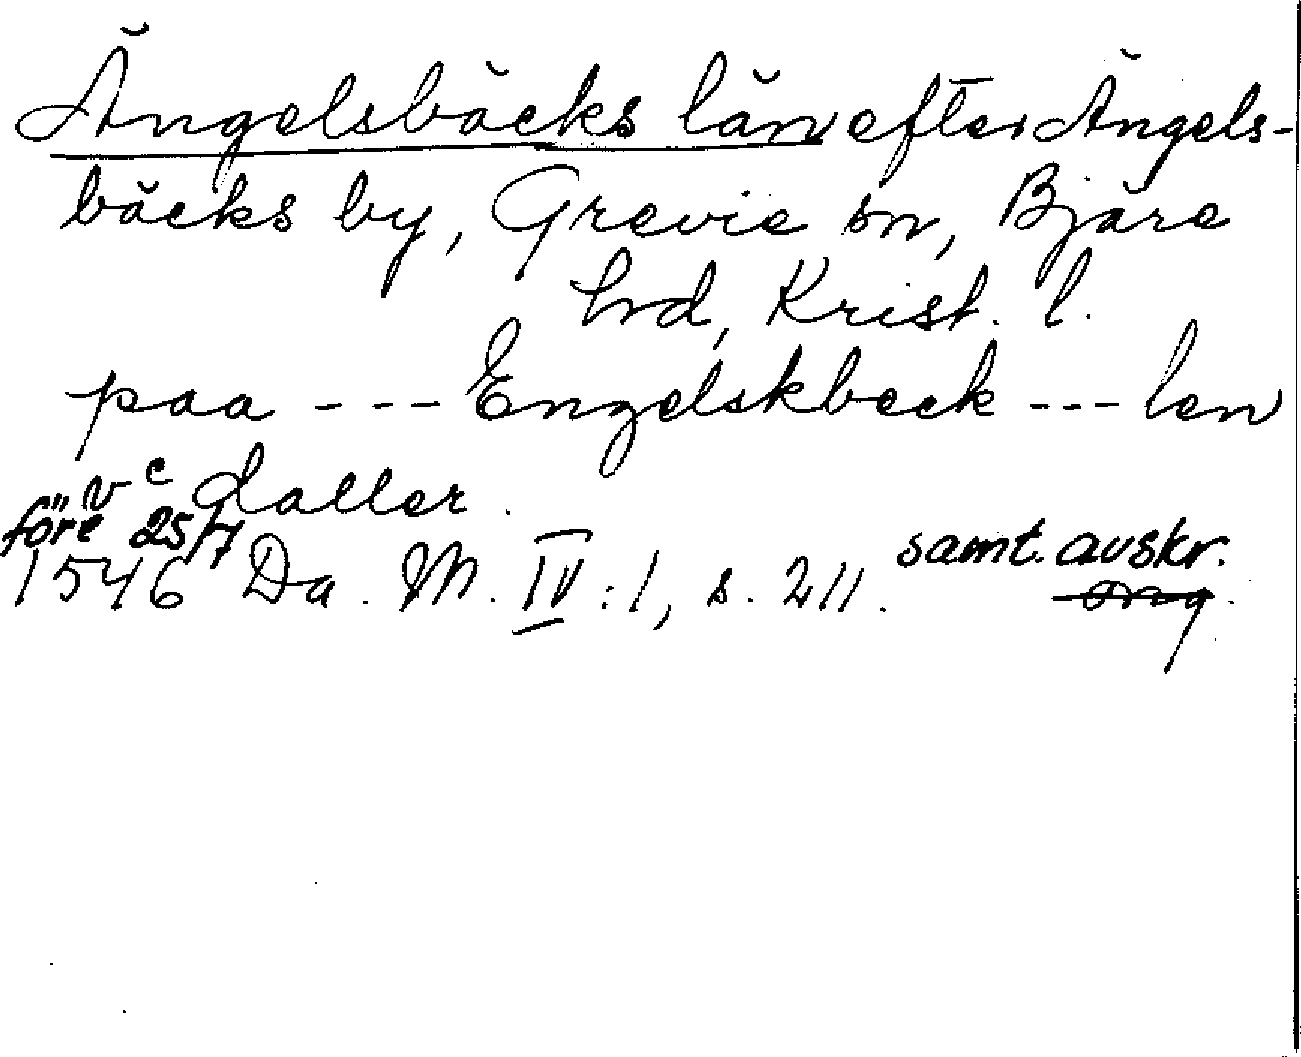 Ängelsbäcks län efter Ängels-
bäcks by, Grevie sn, Bjäre
hrd, Krist. l.
paa --- Engelskbeck --- len
v c daller.
före 25/7
1546 Da. M. IV:1, s. 211. samt. avskr.